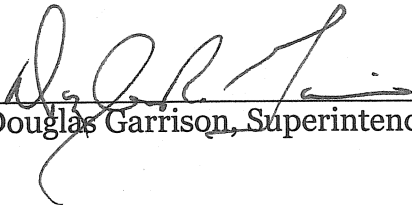 Douglas Garrison, Superintend